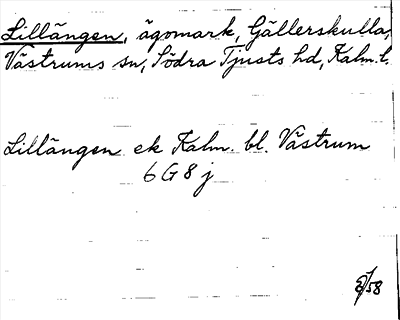 Lillängen, ägomark, Gällerskulla,
Västrums sn, Södra Tjusts hd, Kalm. l.
Lillängen ek Kalm. bl. Västrum
6 G 8 j
/58